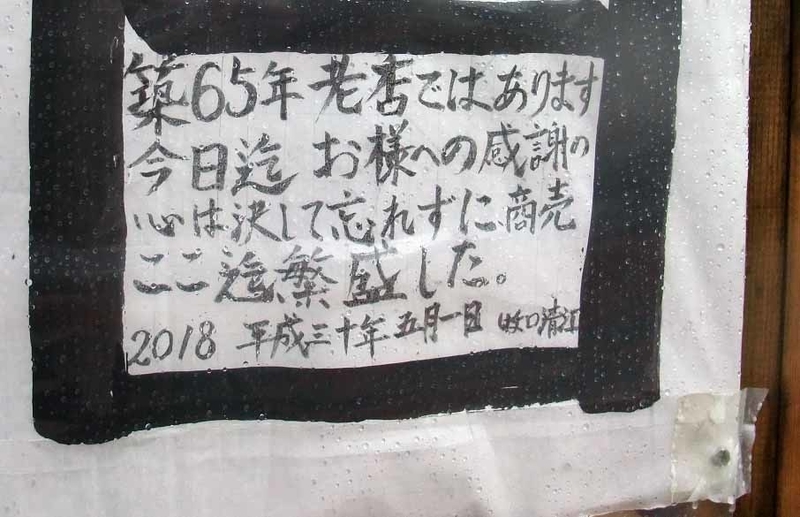 築65年老店ではあります
今日迄 お様への感謝の
心は決して忘れずに商売
ここ迄繁盛した。
2018 平成三十年五月一日 口清江